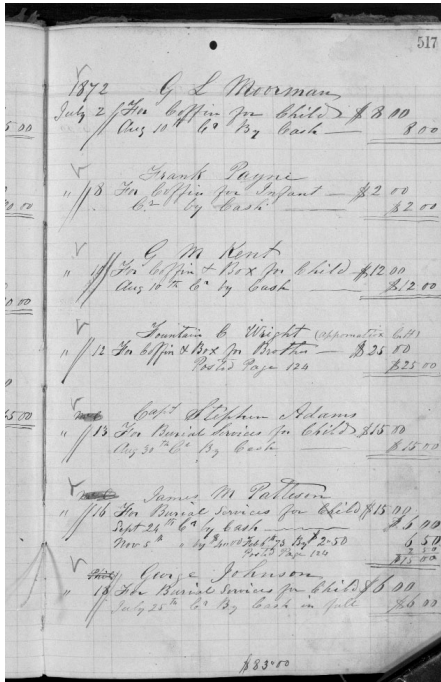 517
1872 G L Moorman
July 2 For Coffin for Child $8 00
Aug 10th Cr By Cash — 8 00
Frank Payne
" 8 For Coffin for Infant — $2 00
Cr by Cash — $2 00
G M Kent
" For Coffin & Box for Child $12 00
Aug 10th Cr by Cash — $12 00
Fountain C Wright (Appomattox Co)
" 12 For Coffin & Box for Brother — $25 00
Posted Page 124 $25 00
Capt Stephen Adams
" 13 For Burial Services for Child $15 00
Aug 30th Cr By Cash — $15 00
James M Patteson
" 16 For Burial Services for Child $15 00
Sept 24th Cr by Cash — $6 00
Nov 5th " by Feb 6th 73 By $2.50 6 50
Posted Page 124 2 50
$15 00
George Johnson
" 18 For Burial Services for Child $6 00
July 25th Cr By Cash in full $6 00
$83.00
5 00
20 00
20 00
45 00